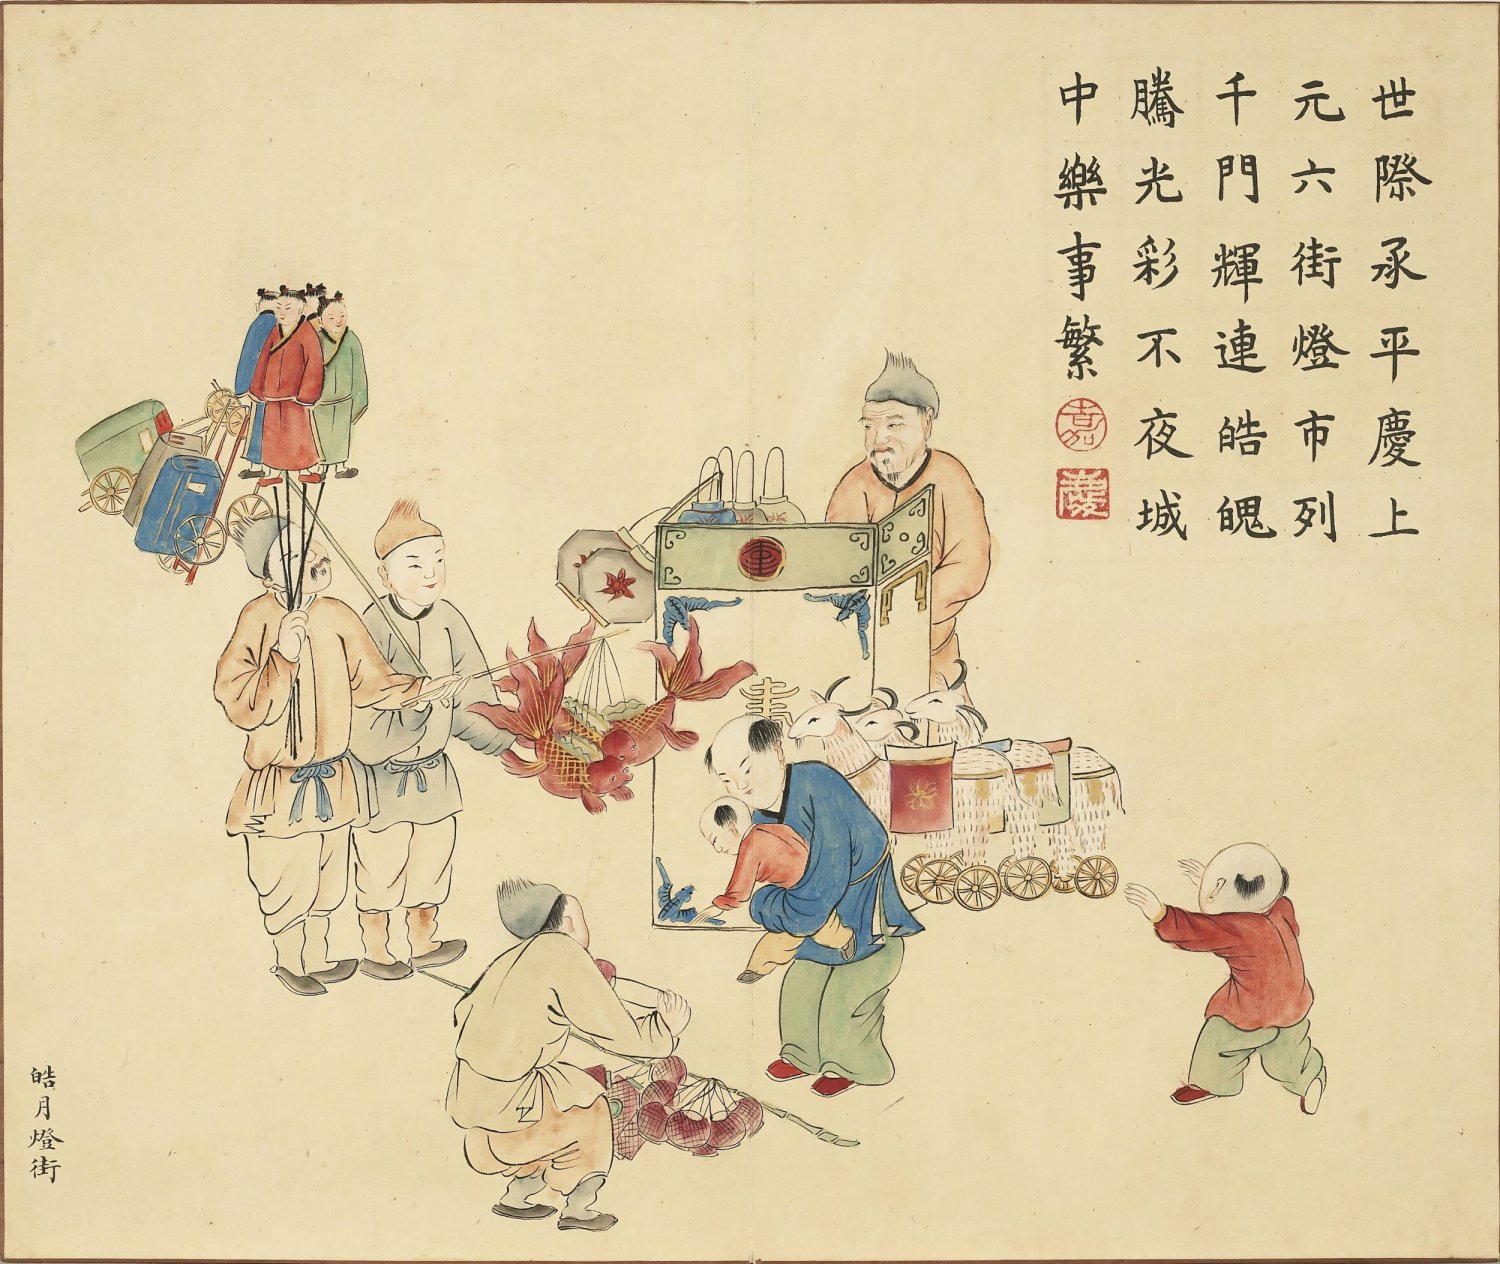 世際承平慶上
元六街燈市列
千門輝連皓魄
騰光彩不夜城
中樂事繁
嘉
慶
皓月燈街